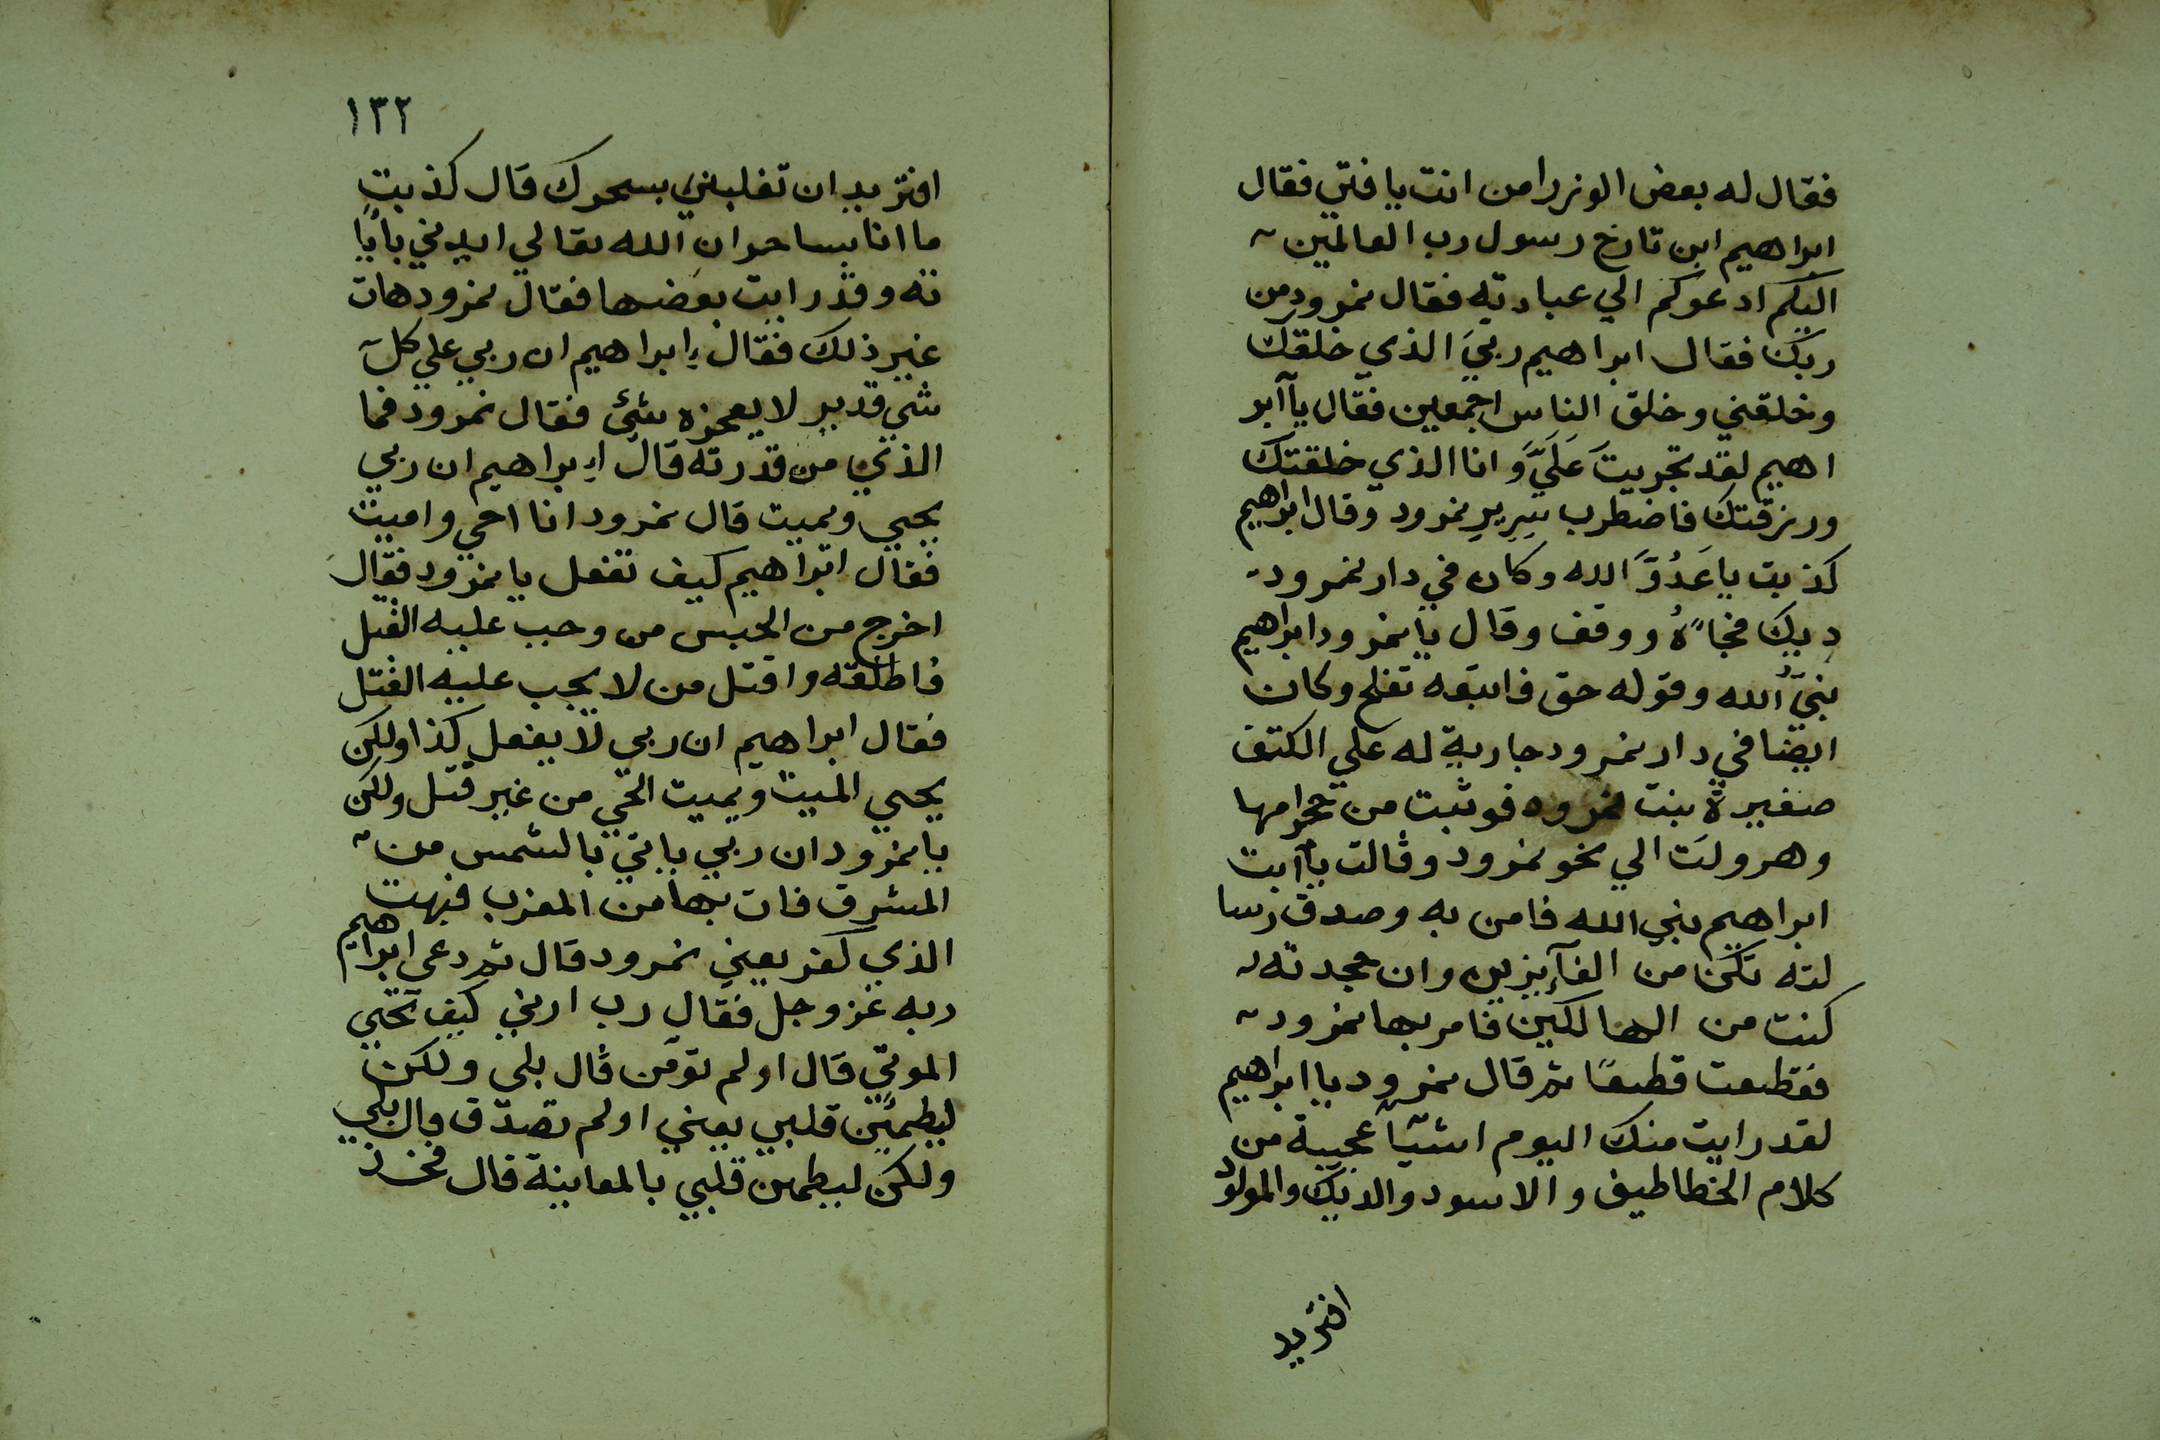 فقال له بعض الوزرا من انت يا فتي فقال
ابراهيم ابن تارخ رسول رب العالمين
اليكم ادعوكم الي عبادته فقال نمرود من
ربك فقال ابراهيم ربيَ الذي خلقك
وخلقني وخلق الناس اجمعين فقال يآ ابر
اهيم لقد تجريتَ عَلَيَّ وانا الذي خلقتك
ورزقتك فاضطرب سرِيرِ نمرود وقال ابراهيم
كذبت يا عَدُوَّ الله وكان في دار نمرود
ديك فجاءهُ ووقف وقال يا نمرود ابراهيم
نبيُّ الله وقوله حق فاتبعه تفلح وكان
ايضا في دار نمرود جارية له علي الكتف
صغيرة بنت نمرود فوثبت من حجر امها
وهرولت الي نحو نمرود وقالت يآ ابت
ابراهيم نبي الله فامن به وصدق رسا
لته تكن من الفآئزين وان جحدته
كنت من الهالكين فامر بها نمرود
فقطعت قطعًا ثم قال نمرود يا ابراهيم
لقد رايت منك اليوم اشيآ عجيبة من
كلام الخطاطيف والاسود والديك والمولود
افتريد
١٣٢
افتريد ان تغلبني بسحرك قال كذبت
ما انا بساحر ان الله تعالي ايدني بايا
ته وقد رايت بعضها فقال نمرود هات
غير ذلك فقال ابراهيم ان ربي علي كل
شي قدير لا يعجزه شئ فقال نمرود فما
الذي من قدرته قال ابراهيم ان ربي
يحيي ويميت قال نمرود انا احي واميت
فقال ابراهيم كيف تفعل يا نمرود فقال
اخرج من الحبس من وجب عليه القتل
فاطلقه واقتل من لا يجب عليه القتل
فقال ابراهيم ان ربي لا يفعل كذا ولكن
يحيي الميت ويميت الحي من غير قتل ولكن
يا نمرود ان ربي ياتي بالشمس من
المشرق فات بها من المغرب فبهت
الذي كفر يعني نمرود قال ثم دعي ابراهيم
ربه عز وجل فقال رب ارني كيف تحيي
الموتي قال اولم تؤمن قال بلي ولكن
ليطمئن قلبي يعني اولم تصدق قال بلي
ولكن ليطمئن قلبي بالمعاينة قال فخذ